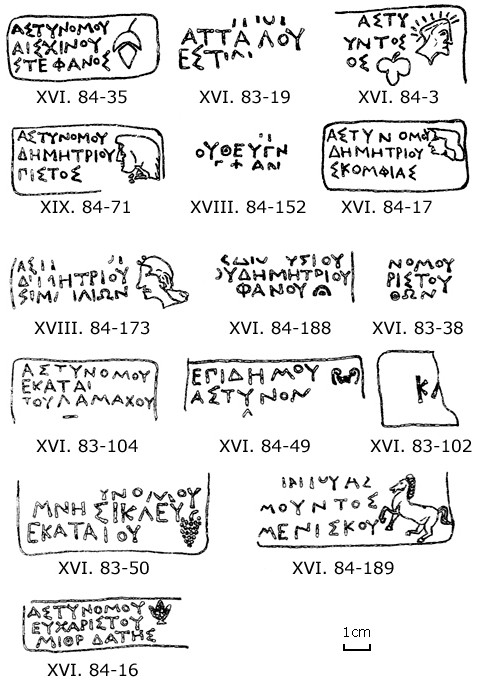 ΑΣΤΥΝΟΜΟΥ
ΑΙΣΧΙΝΟΥ
ΣΤΕΦΑΝΟΣ
XVI. 84-35
ΑΤΤΑΛΟΥ
XVI. 83-19
ΑΣΤΥ
ΥΝΤΟΣ
ΟΣ
XVI. 84-3
ΑΣΤΥΝΟΜΟΥ
ΔΗΜΗΤΡΙΟΥ
ΠΙΣΤΟΣ
XIX. 84-71
ΟΥΘΕΥΓΝ
XVIII. 84-152
ΑΣΤΥΝΟΜΟ
ΔΗΜΗΤΡΙΟΥ
ΣΚΟΜΦΙΑΣ
XVI. 84-17
XVIII. 84-173
ΥΣΙΟΥ
ΟΥΔΗΜΗΤΡΙΟΥ
ΦΑΝΟΥ
XVI. 84-188
ΝΟΜΟΥ
ΡΙΣΤΟΥ
ΘΩΝ
XVI. 83-38
ΑΣΤΥΝΟΜΟΥ
ΕΚΑΤΑΙ
ΤΟΥΛΑΜΑΧΟΥ
XVI. 83-104
ΕΠΙΔΗΜΟΥ
ΑΣΤΥΝΟΝ
XVI. 84-49
XVI. 83-102
ΥΝΟΜΟΥ
ΜΝΗΣΙΚΛΕΥ
ΕΚΑΤΑΙΟΥ
XVI. 83-50
ΜΟΥΝΤΟΣ
ΜΕΝΙΣΚΟΥ
XVI. 84-189
ΑΣΤΥΝΟΜΟΥ
ΕΥΧΑΡΙΣΤΟΥ
ΜΙΘΡ ΔΑΤΗΣ
XVI. 84-16
1cm